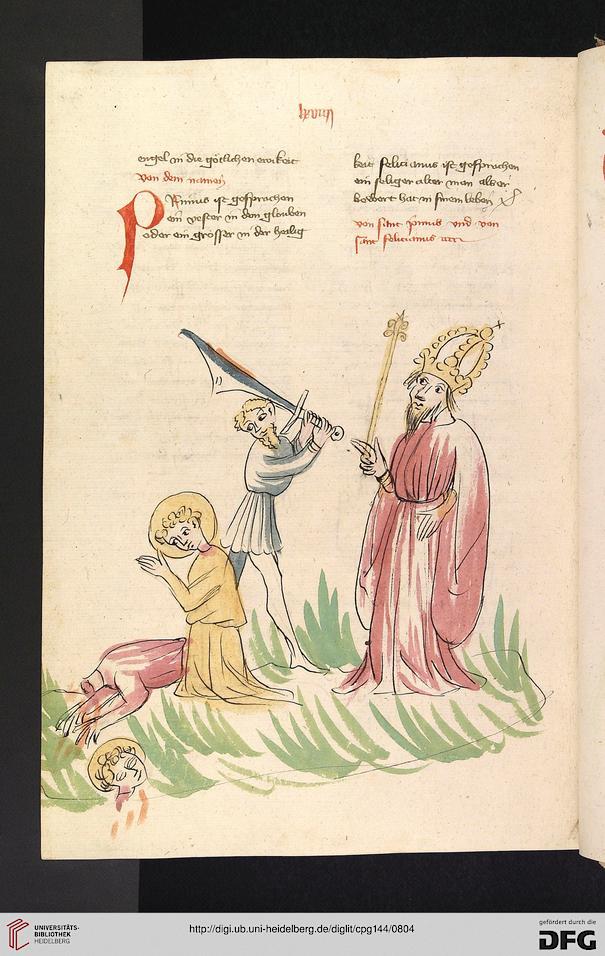 engel in die götlichen ewikeit
von dem namen
PRimus ist gesprochen
ein vester in dem glouben
oder ein grosser in der heilig
keit felicianus ist gesprochen
ein seliger alter man als er
bewert hat in sinem leben
von sant primus vnd von
sant felicianus
UNIVERSITÄTS-
BIBLIOTHEK
HEIDELBERG
http://digi.ub.uni-heidelberg.de/diglit/cpg144/0804
gefördert durch die
DFG